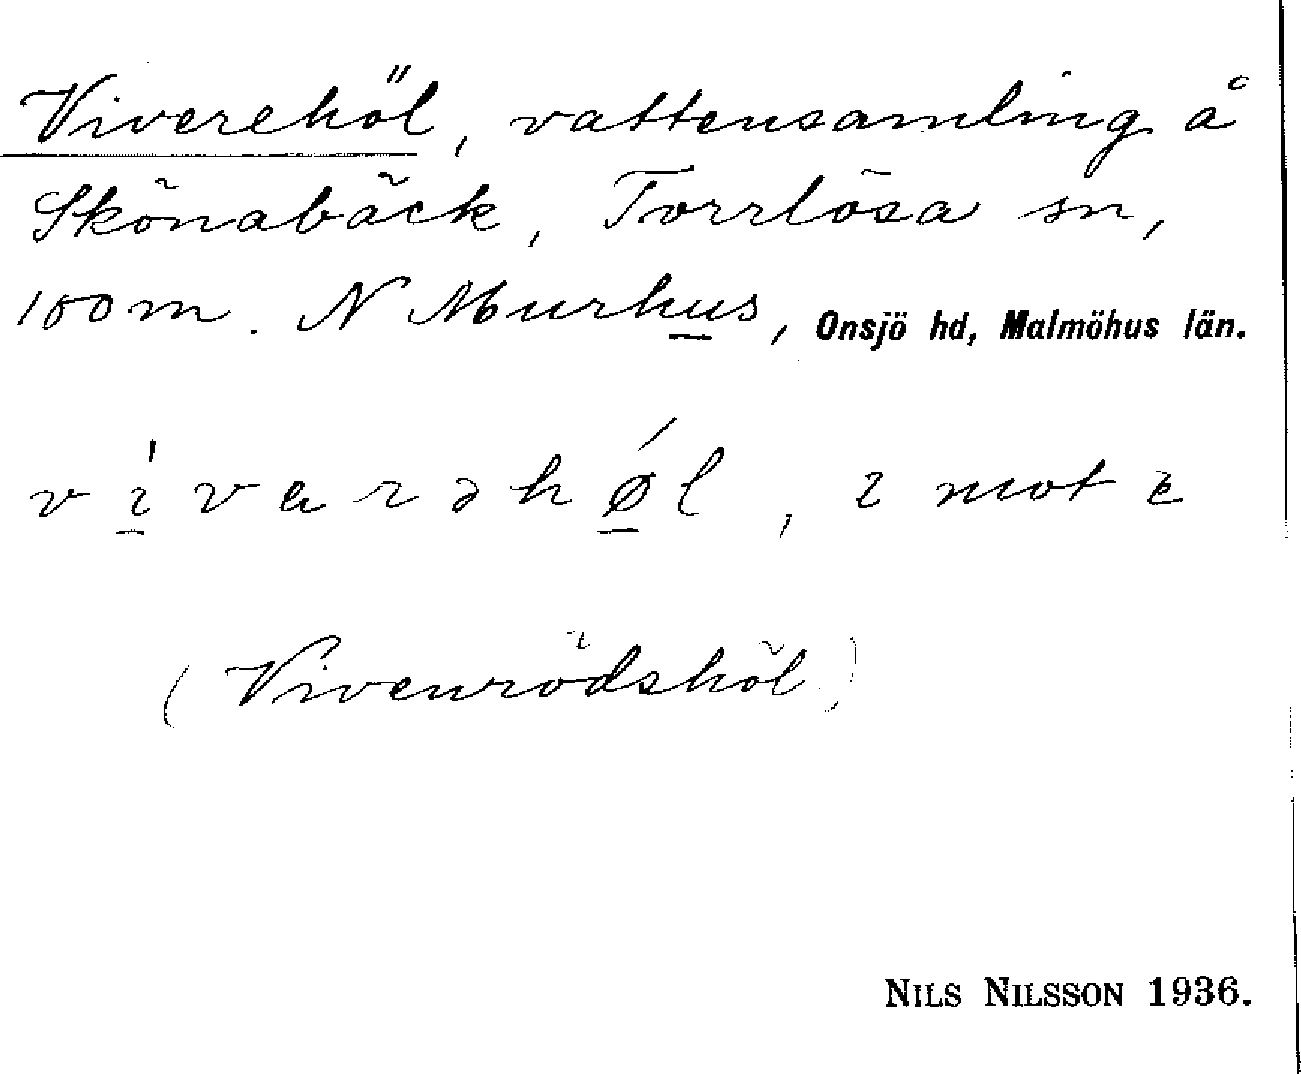 Viverehöl, vattensamling å
Skönabäck, Torrlösa sn,
100 m. N Murhus, Onsjö hd, Malmöhus län.
vivarəhǿl, i mot
(Vivenrödshöl)
NILS NILSSON 1936.